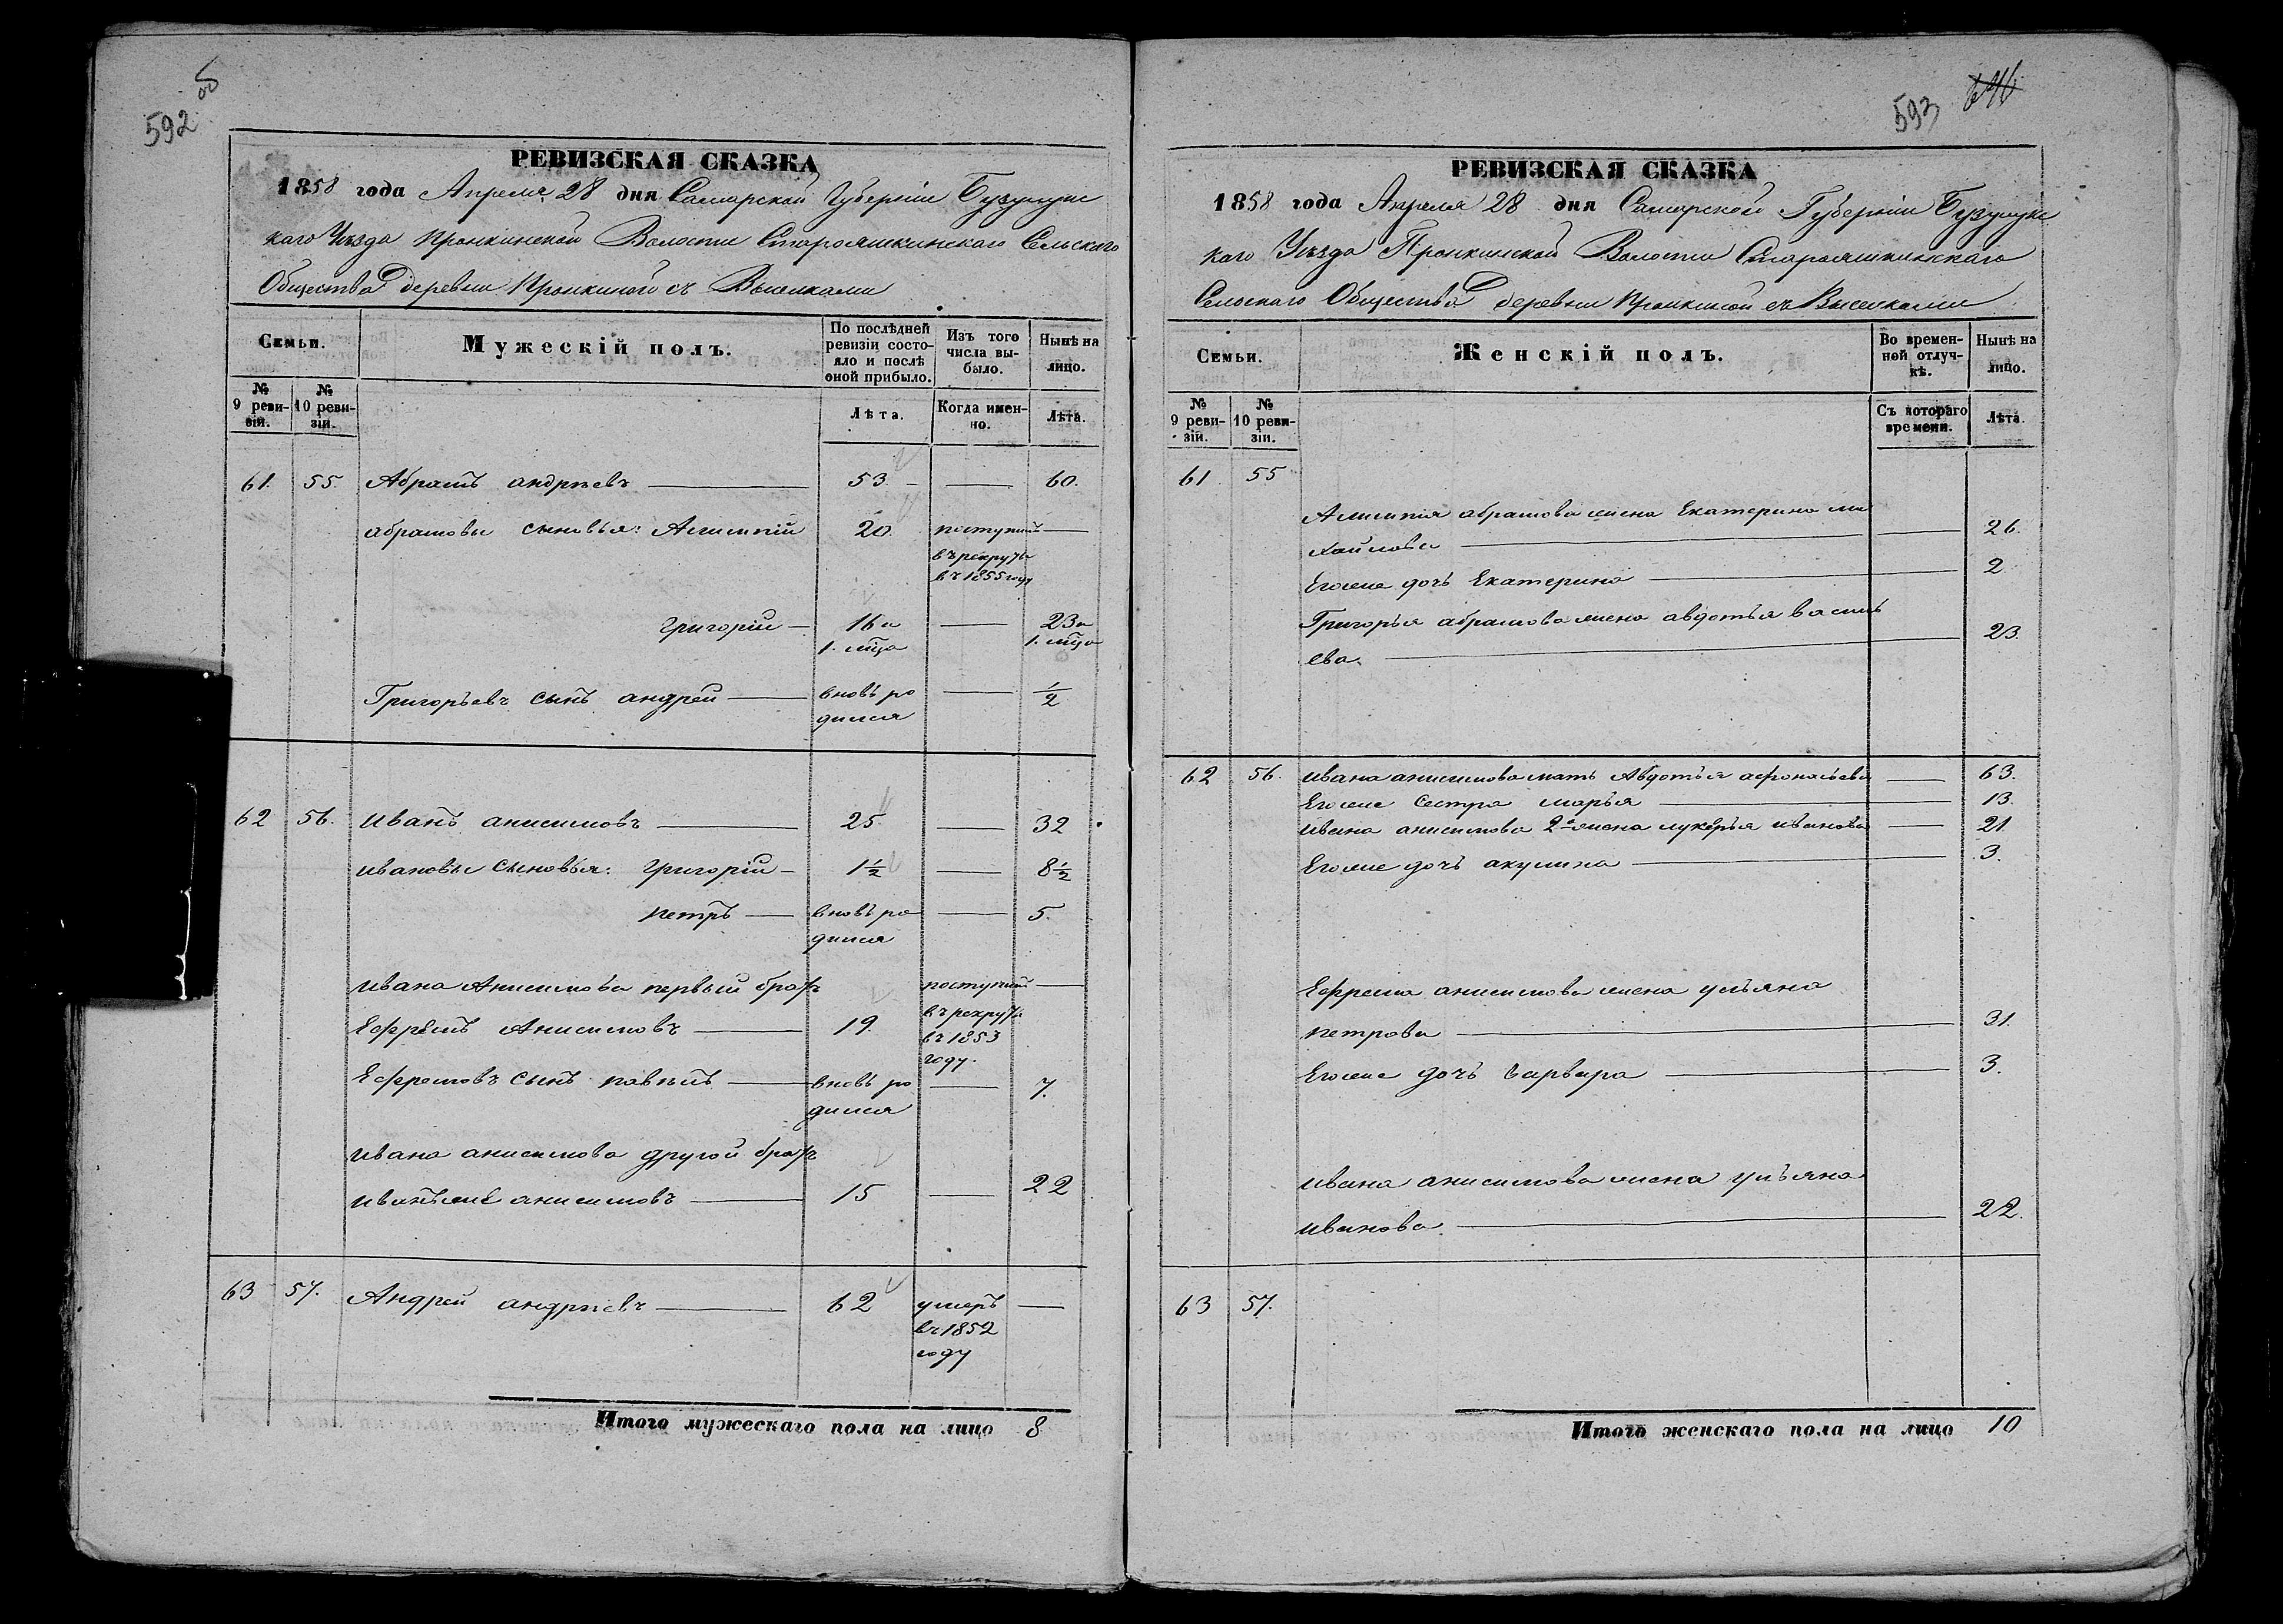 592 об
РЕВИЗСКАЯ СКАЗКА
1858 года Апреля 28 дня Самарской Губернiи Бузулукс
каго Уѣзда Пронкинской Волости Старояшкинскаго Сельскаго
Общества Деревни Пронкиной съ Выселками
Семьи.
Мужескiй полъ.
По послѣдней ревизiи состояло и послѣ оной прибыло.
Изъ того числа выбыло.
Нынѣ на лицо.
№ 9 ревизiи.
№ 10 ревизiи.
Лѣта.
Когда именно.
Лѣта.
61. 55. Абрамъ андрѣевъ 53. 60.
абрамовы сыновья: Алимпiй 20. поступилъ
въ рекруты
въ 1855 году
григорiй 16 и 23 и
1. мца 1. мца
Григорьевъ сынъ андрей вновь ро ½
дился
62 56. иванъ анисимовъ 25. 32
ивановы сыновья: григорiй 1½ 8½
петръ вновь ро 5.
дился
ивана Анисимова первый братъ поступилъ
Ефремъ Анисимовъ 19. въ рекруты
въ 1853
году.
Ефремовъ сынъ павелъ вновь ро 7.
дился
ивана анисимова другой братъ
иванъ же анисимовъ 15 22
63 57. Андрей андрѣевъ 62 умеръ
въ 1852
году
Итого мужескаго пола на лицо 8
593
РЕВИЗСКАЯ СКАЗКА
1858 года Апреля 28 дня Самарской Губернiи Бузулукс
каго Уѣзда Пронкинской Волости Старояшкинскаго
Сельскаго Общества Деревни Пронкиной съ Выселками
Семьи.
Женскiй полъ.
Во временной отлучкѣ.
Нынѣ на лицо.
№ 9 ревизiи.
№ 10 ревизiи.
Съ котораго времени.
Лѣта.
61. 55
Алимпiя абрамова жена Екатерина ми
хайлова 26.
Егоже дочь Екатерина 2
Григорья абрамова жена авдотья василь
ева. 23.
62 56. ивана анисимова мать Авдотья афонасьева 63.
Егоже сестра марья 13.
ивана анисимова 2я жена лукерья иванова 21.
Егоже дочь акулина 3.
Ефрема анисимова жена ульяна
петрова 31.
Егоже дочь варвара 3.
ивана анисимова жена ульяна
иванова. 22.
63 57.
Итого женскаго пола на лицо 10